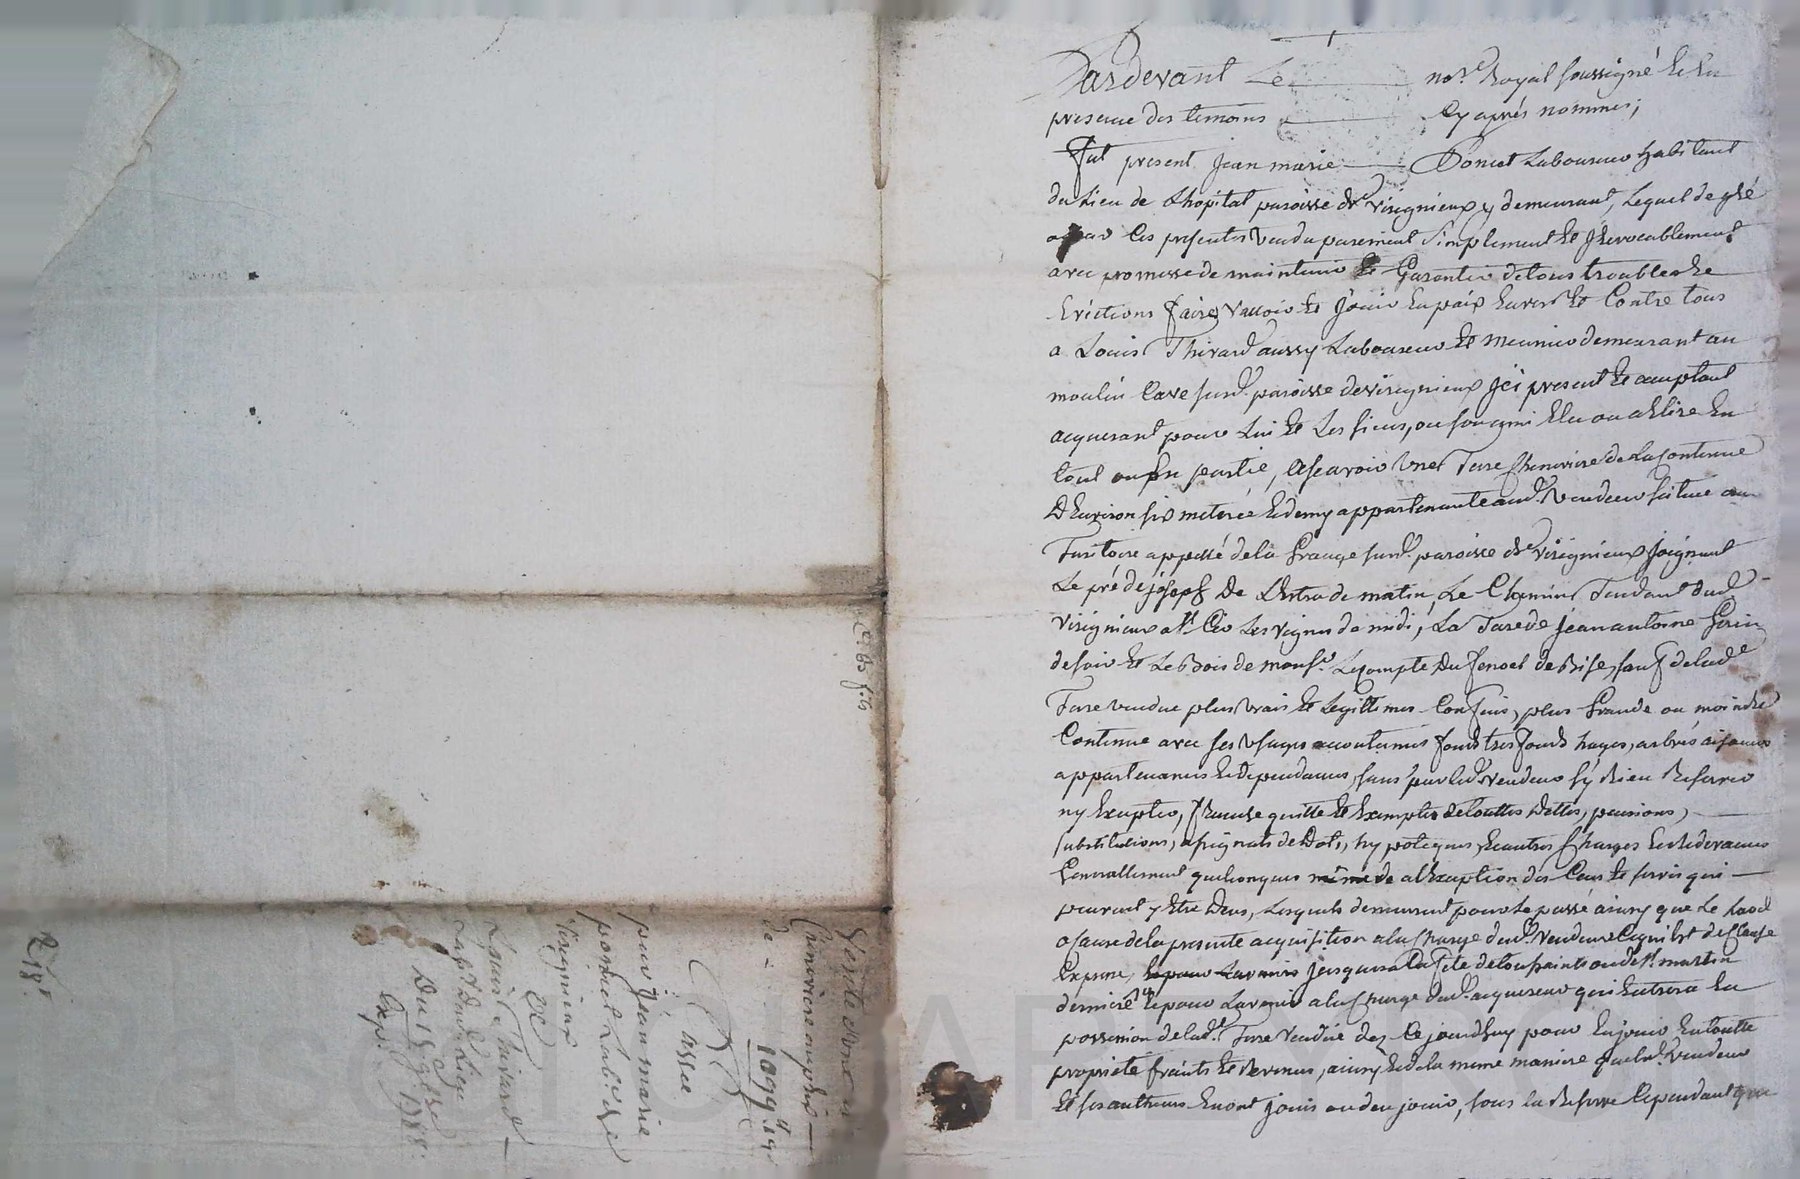 Pardevant Le not.e Royal soussigné et en
presence des temoins cy aprés nommés;
Fut present Jean marie Poncet Laboureur habitant
du Lieu de Lhopital paroisse de virignieux y demeurant, Lequel de gré
a par ces presentes vendu purement simplement et jrrevocablement
avec promesse de maintenir et Garentir de tous troubles et
Evictions faire valloir et jouir en paix Envers et Contre tous
a Louis Thivard aussy Laboureur et meunier demeurant au
moulin Cave susd. paroisse de virignieux jci present et acceptant
acquerant pour Lui et Les siens, ou son ami Elu ou a Elire En
tout ou En partie, ascavoir une Terre Cheneviere de La Contenue
D'Environ six meterée et demy appartenante aud. vendeur situee au
Territoire appellé de la Grange susd. paroisse de virignieux joignant
Le pré de joseph De Lestra de matin, Le Chemin Tendant dud.
virignieux a Les vignes de midi, La Terre de jean antoine Gerin
de soir et Le Bois de mons.r Lecompte Du fenoel de Bise, sauf de lad.e
Terre vendue plus vrais et Legittimes Confins, plus Grande ou moindre
Contenue avec ses usages accoutumés fonds tres fonds hayes, arbres aisances
appartenances et dependances, sans par led. vendeur s'y Rien Reserver
ny Excepter, franche quitte et Exempte de touttes Dettes, pensions,
substitutions, assignats de Dots, hypoteques, et autres Charges et Redevances
Generallement quelconques a l'Exception des Cens et servis qui
peuvent y Etre Deus, Lesquels demeurent pour Le passé ainsy que Le Laod
a Cause de la presente acquisition a la Charge dud. vendeur Ce qui Est de Clause
Expresse, jusques a La fete de toussaints ou de s.t martin
derniere et pour Lavenir a la Charge dud. acquereur qui Entrera En
possession de lad. Terre vendue dez Ce jourdhuy pour En jouir En toutte
proprieté fruits et Revenus, ainsy et de la meme maniere que led. vendeur
et ses autheurs En ont joui ou deu jouir, sous la Reserve Cependant que
Vente d'une
Cheneviere
10991
assée
par jean marie
poncet Lab.r de
virignieux
a
Louis Thivard
Lab.r dud. Lieu
Exp.